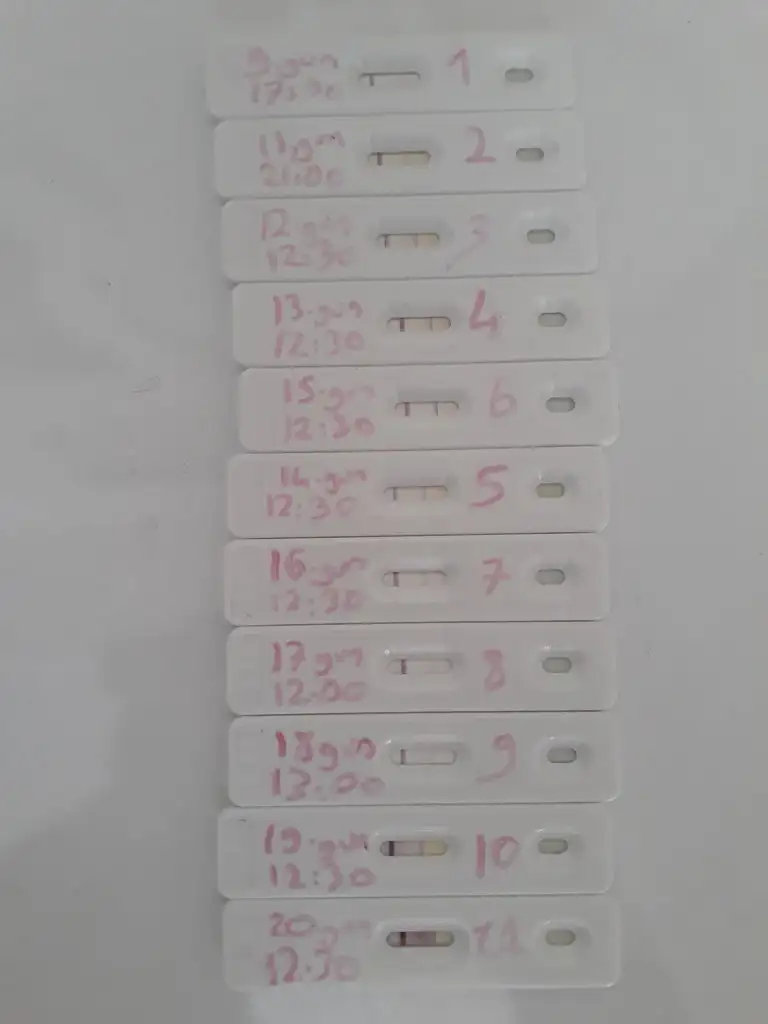 9.gün 1
17:30
11 gün 2
21:00
12 gün 3
12:30
13.gün 4
12:30
15.gün 6
12:30
14.gün 5
12:30
16.gün 7
12:30
17 gün 8
12:00
18gün 9
13:00
19.gün 10
12:30
20gün 11
12:30